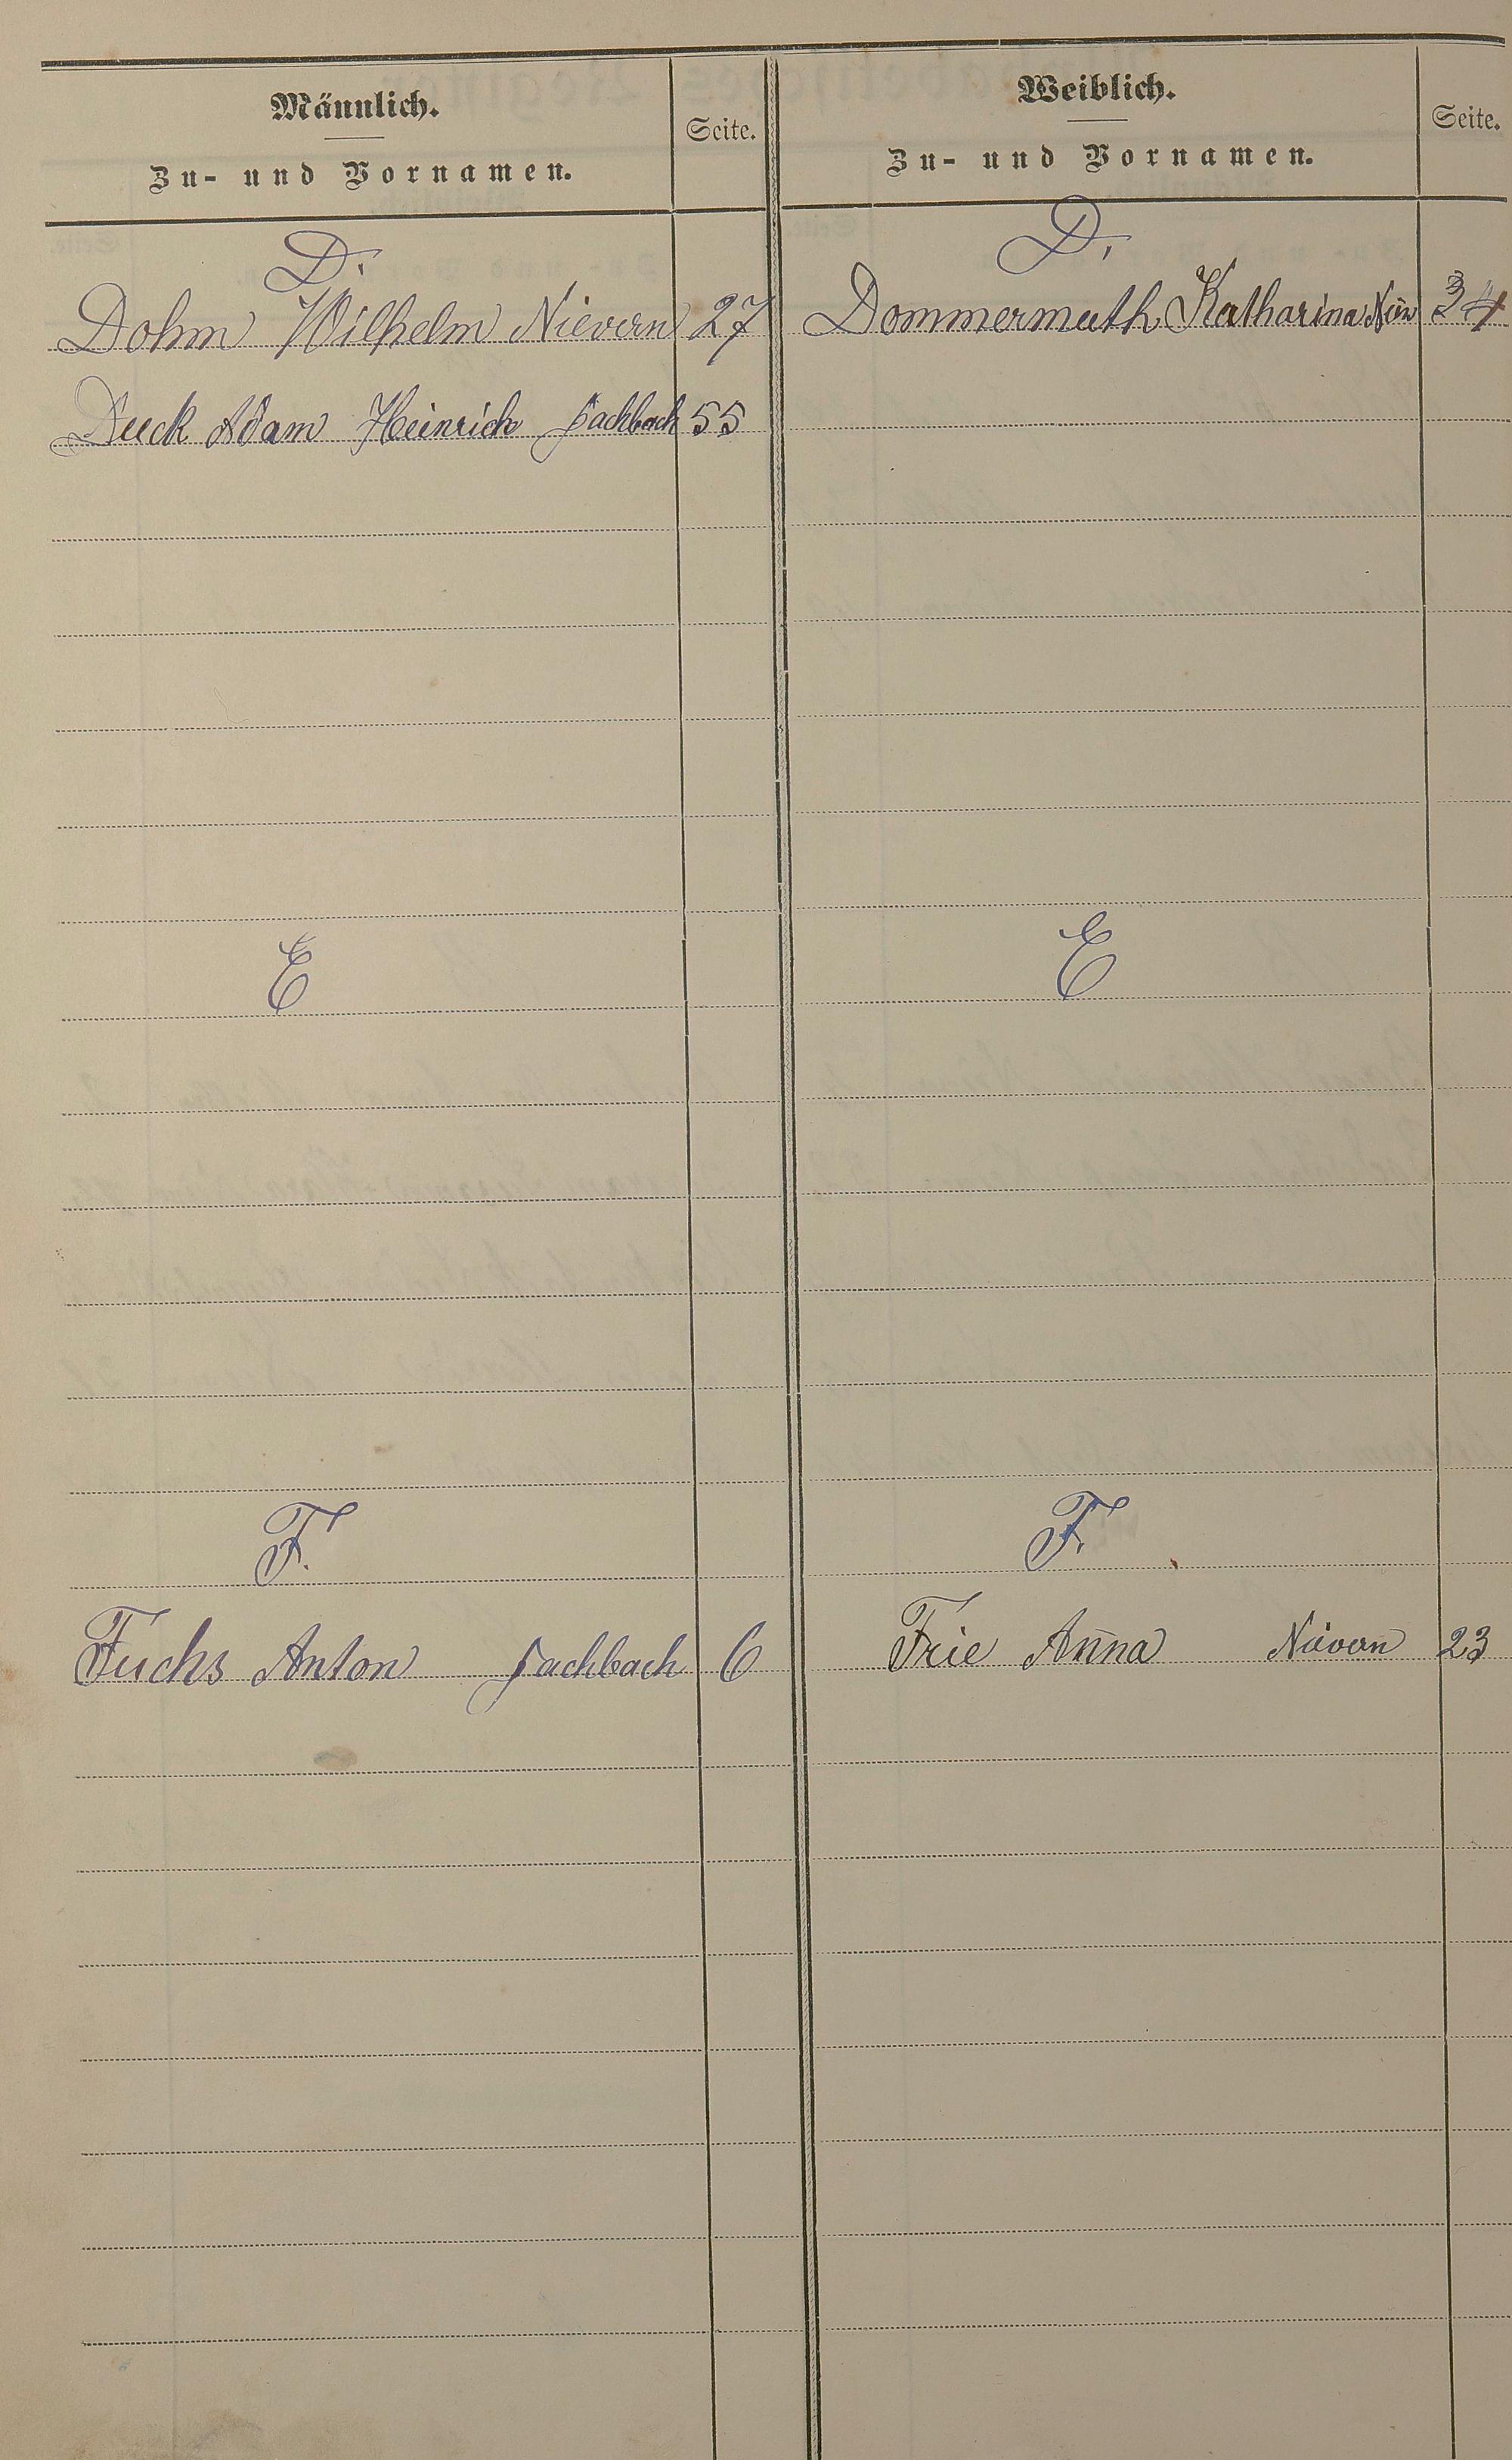 Männlich.
Zu- und Vornamen.
Seite.
D.
Dohm Wilhelm Nievern 27
Duck Adam Heinrich Fachbach 55
E
F.
Fuchs Anton Fachbach 6
Weiblich.
Zu- und Vornamen.
Seite.
D.
Dommermuth Katharina 34
E
F.
Frie Anna Nievern 23